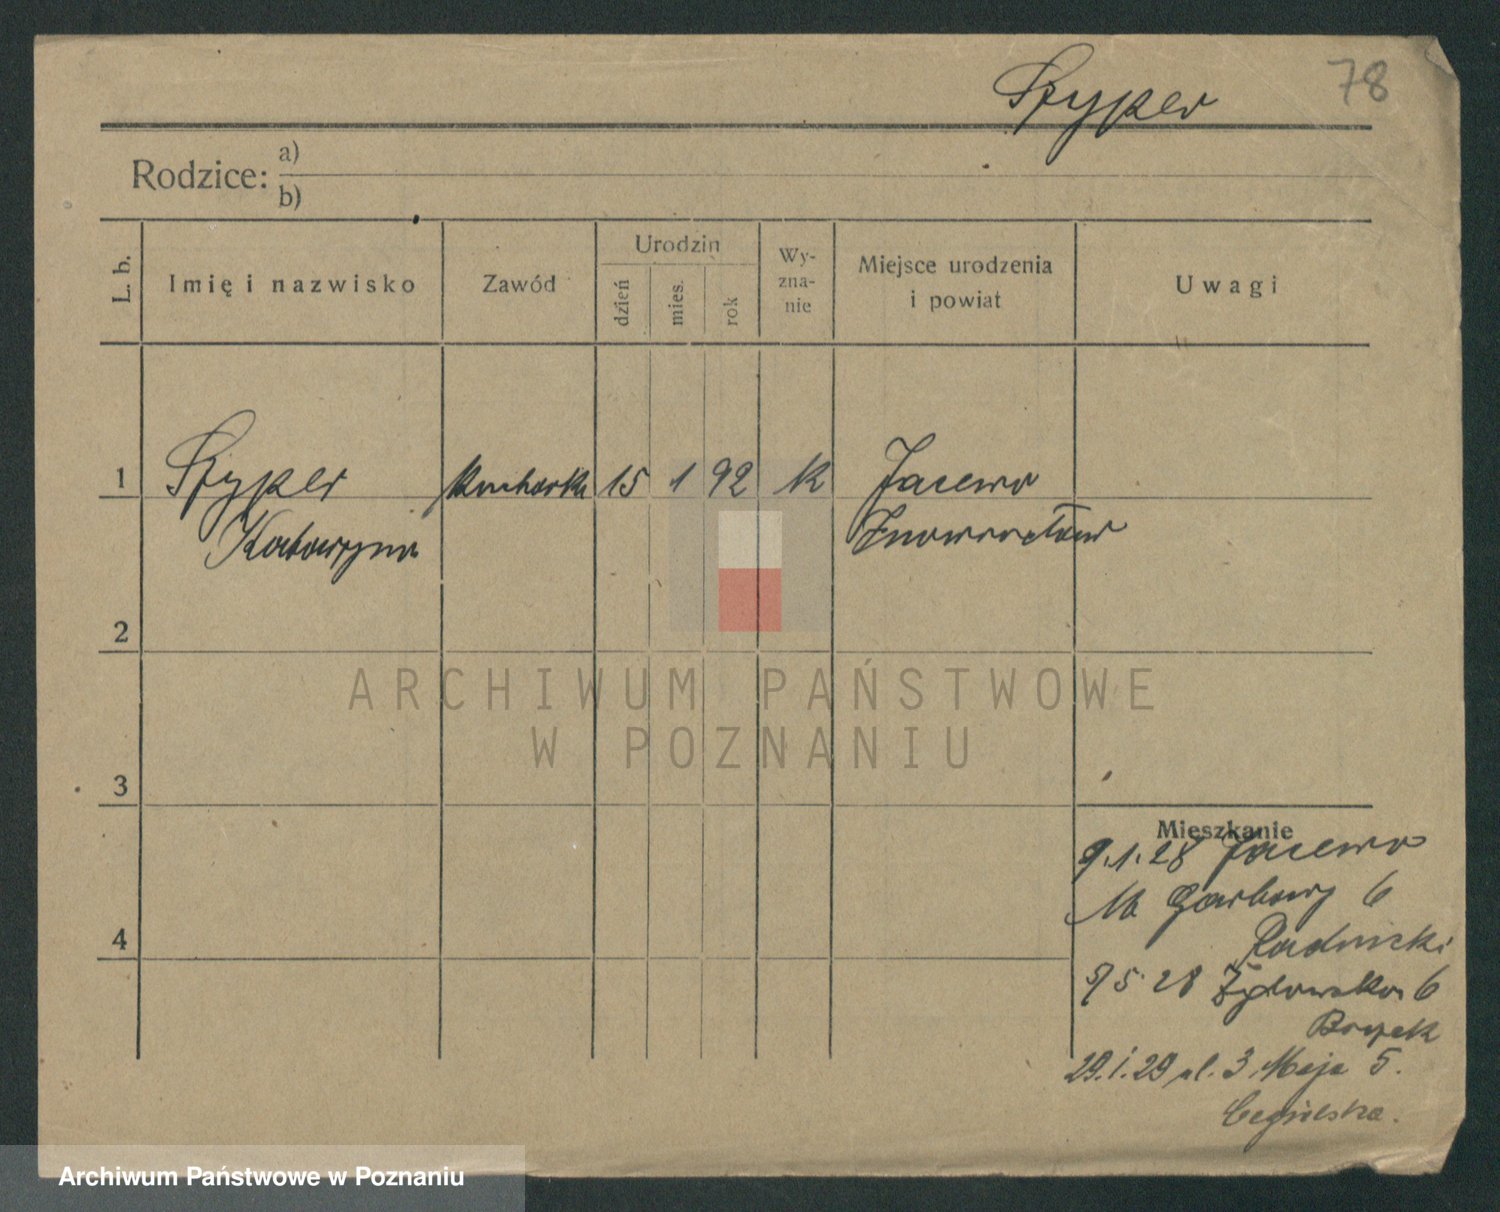 Szyper 78
Rodzice: a)
b)
L. b.
Imię i nazwisko
Zawód
Urodzin
dzień
mies.
rok
Wy-
zna-
nie
Miejsce urodzenia
i powiat
Uwagi
1 Szyper kucharka 15 1 92 k Jacewo
Katarzyna Inowrocław
2
3
4
Mieszkanie
9.1.28 Jacewo
Garbary 6
Radnicki
5 28 Żydowska 6
29.1.29 ul. 3 Maja 5.
Cegielska.
ARCHIWUM PAŃSTWOWE
W POZNANIU
Archiwum Państwowe w Poznaniu